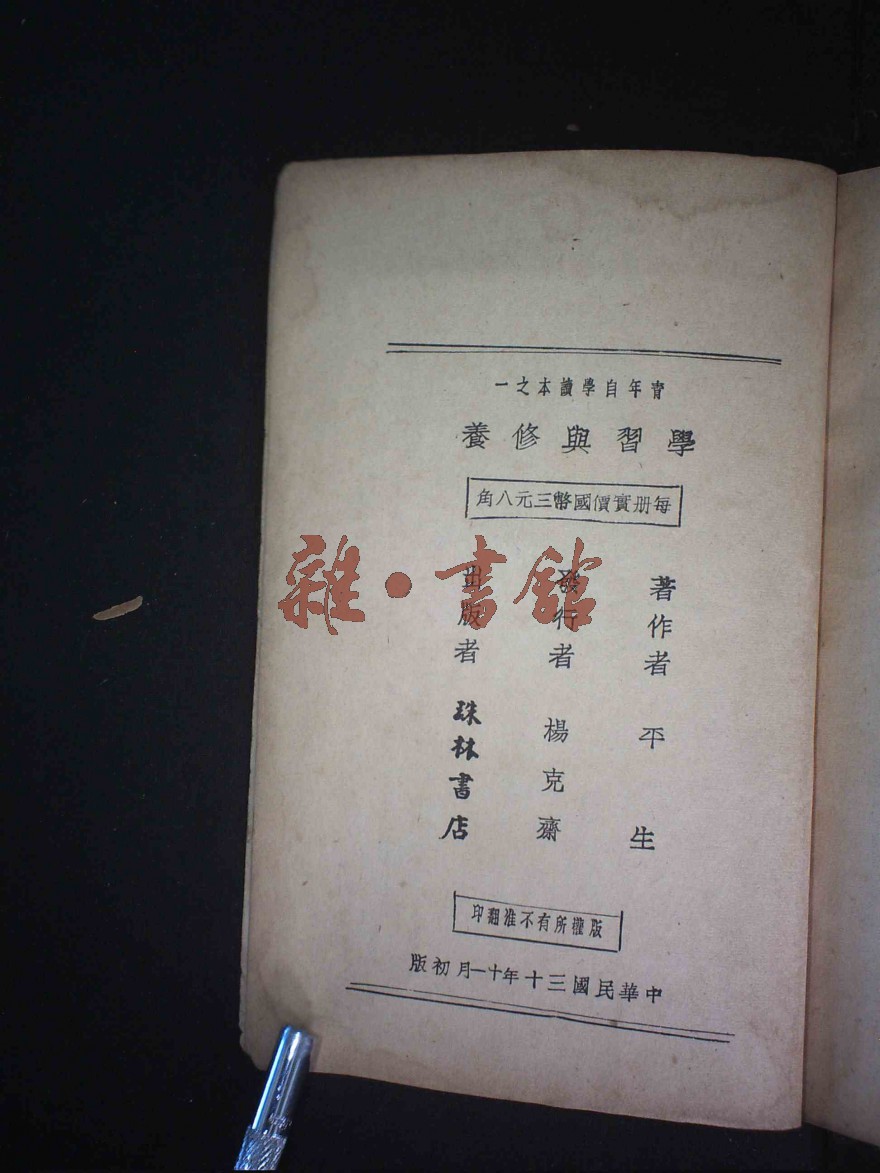 青年自學讀本之一
學習與修養
每册實價國幣三元八角
著作者 平生
發行者 楊克齋
出版者 珠林書店
版權所有不准翻印
中華民國三十年十一月初版
雜·書館